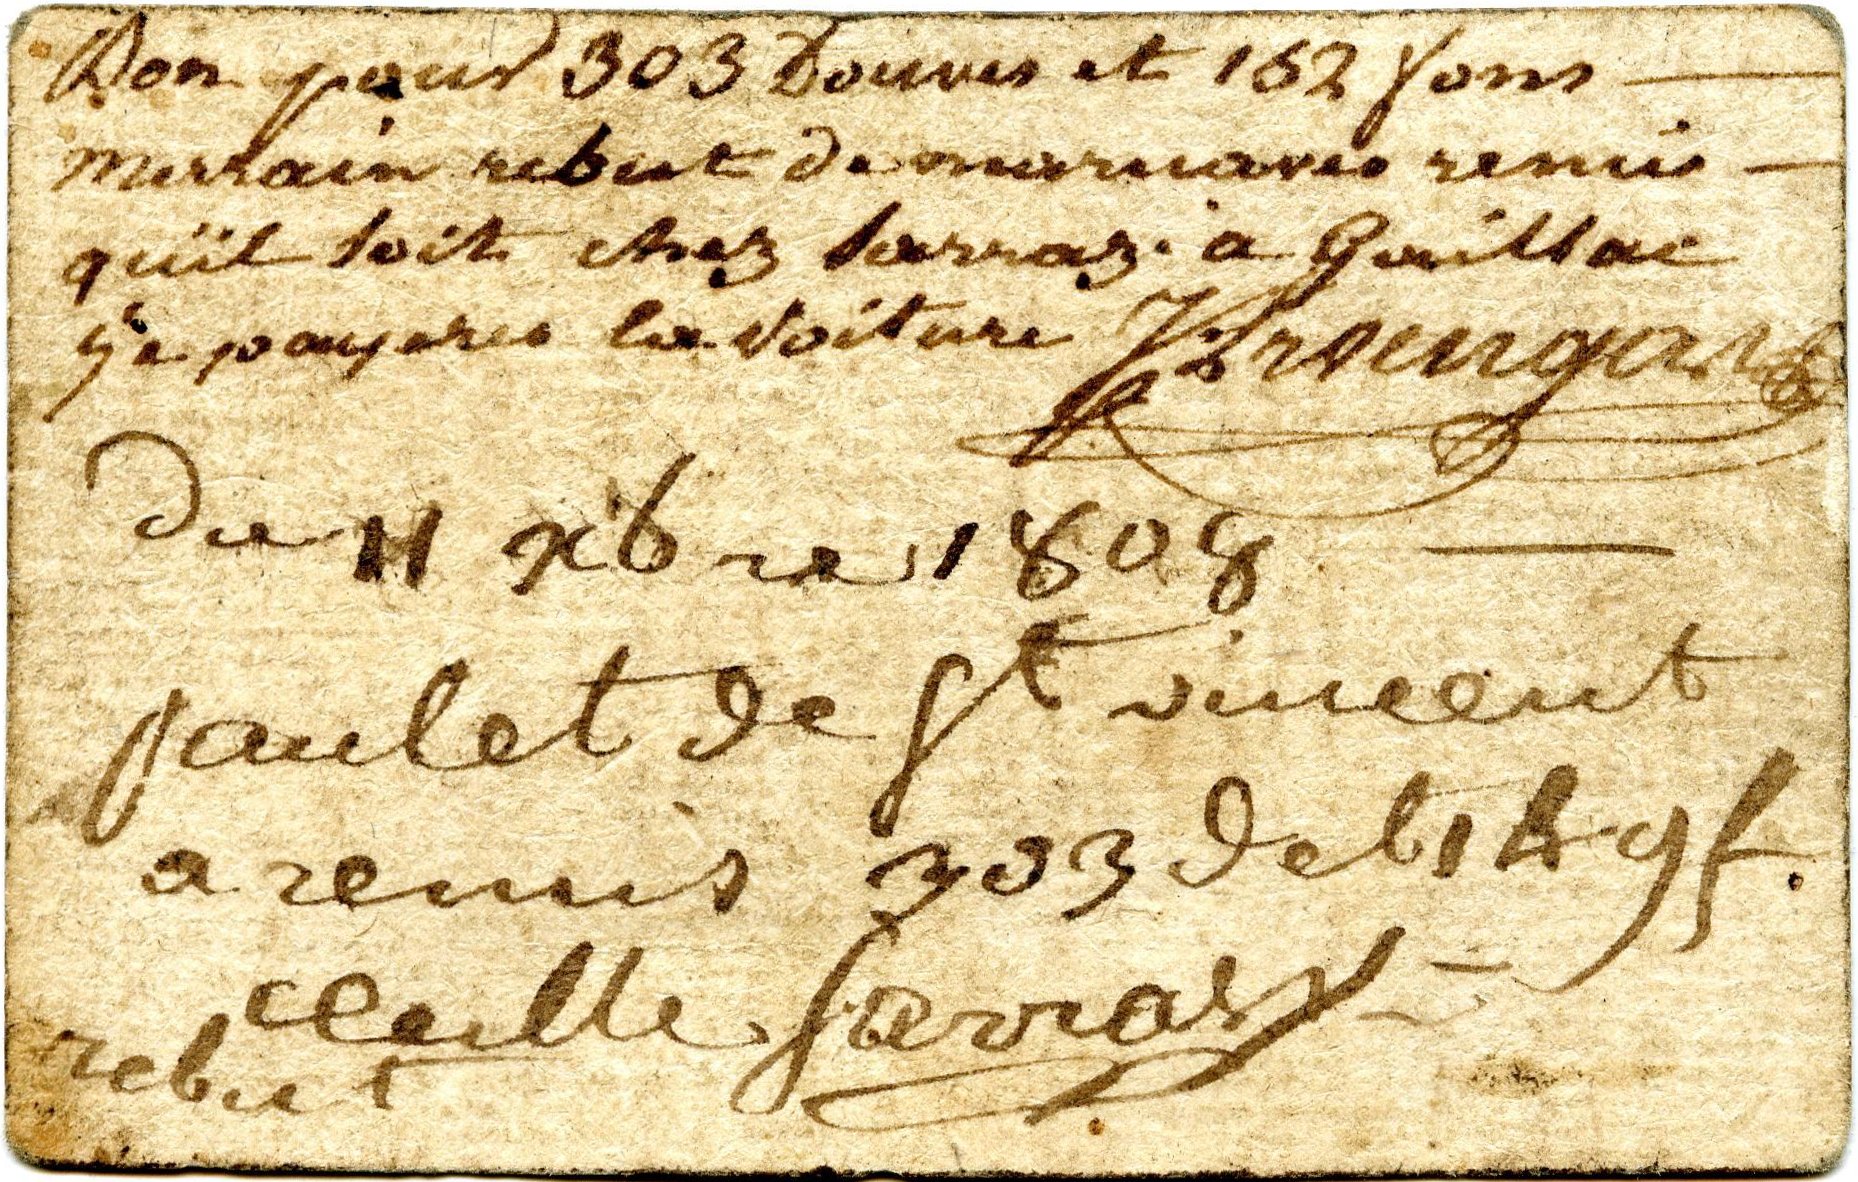 Bon pour 303 Douves et 152 fons
merrain rebut de marianes remis
qu'il soit chez sarraz a Gaillac
je payeres la voiture
Du 11 xbre 1808
paulet de St vincent
a remis 303 de
sarrasy
rebut